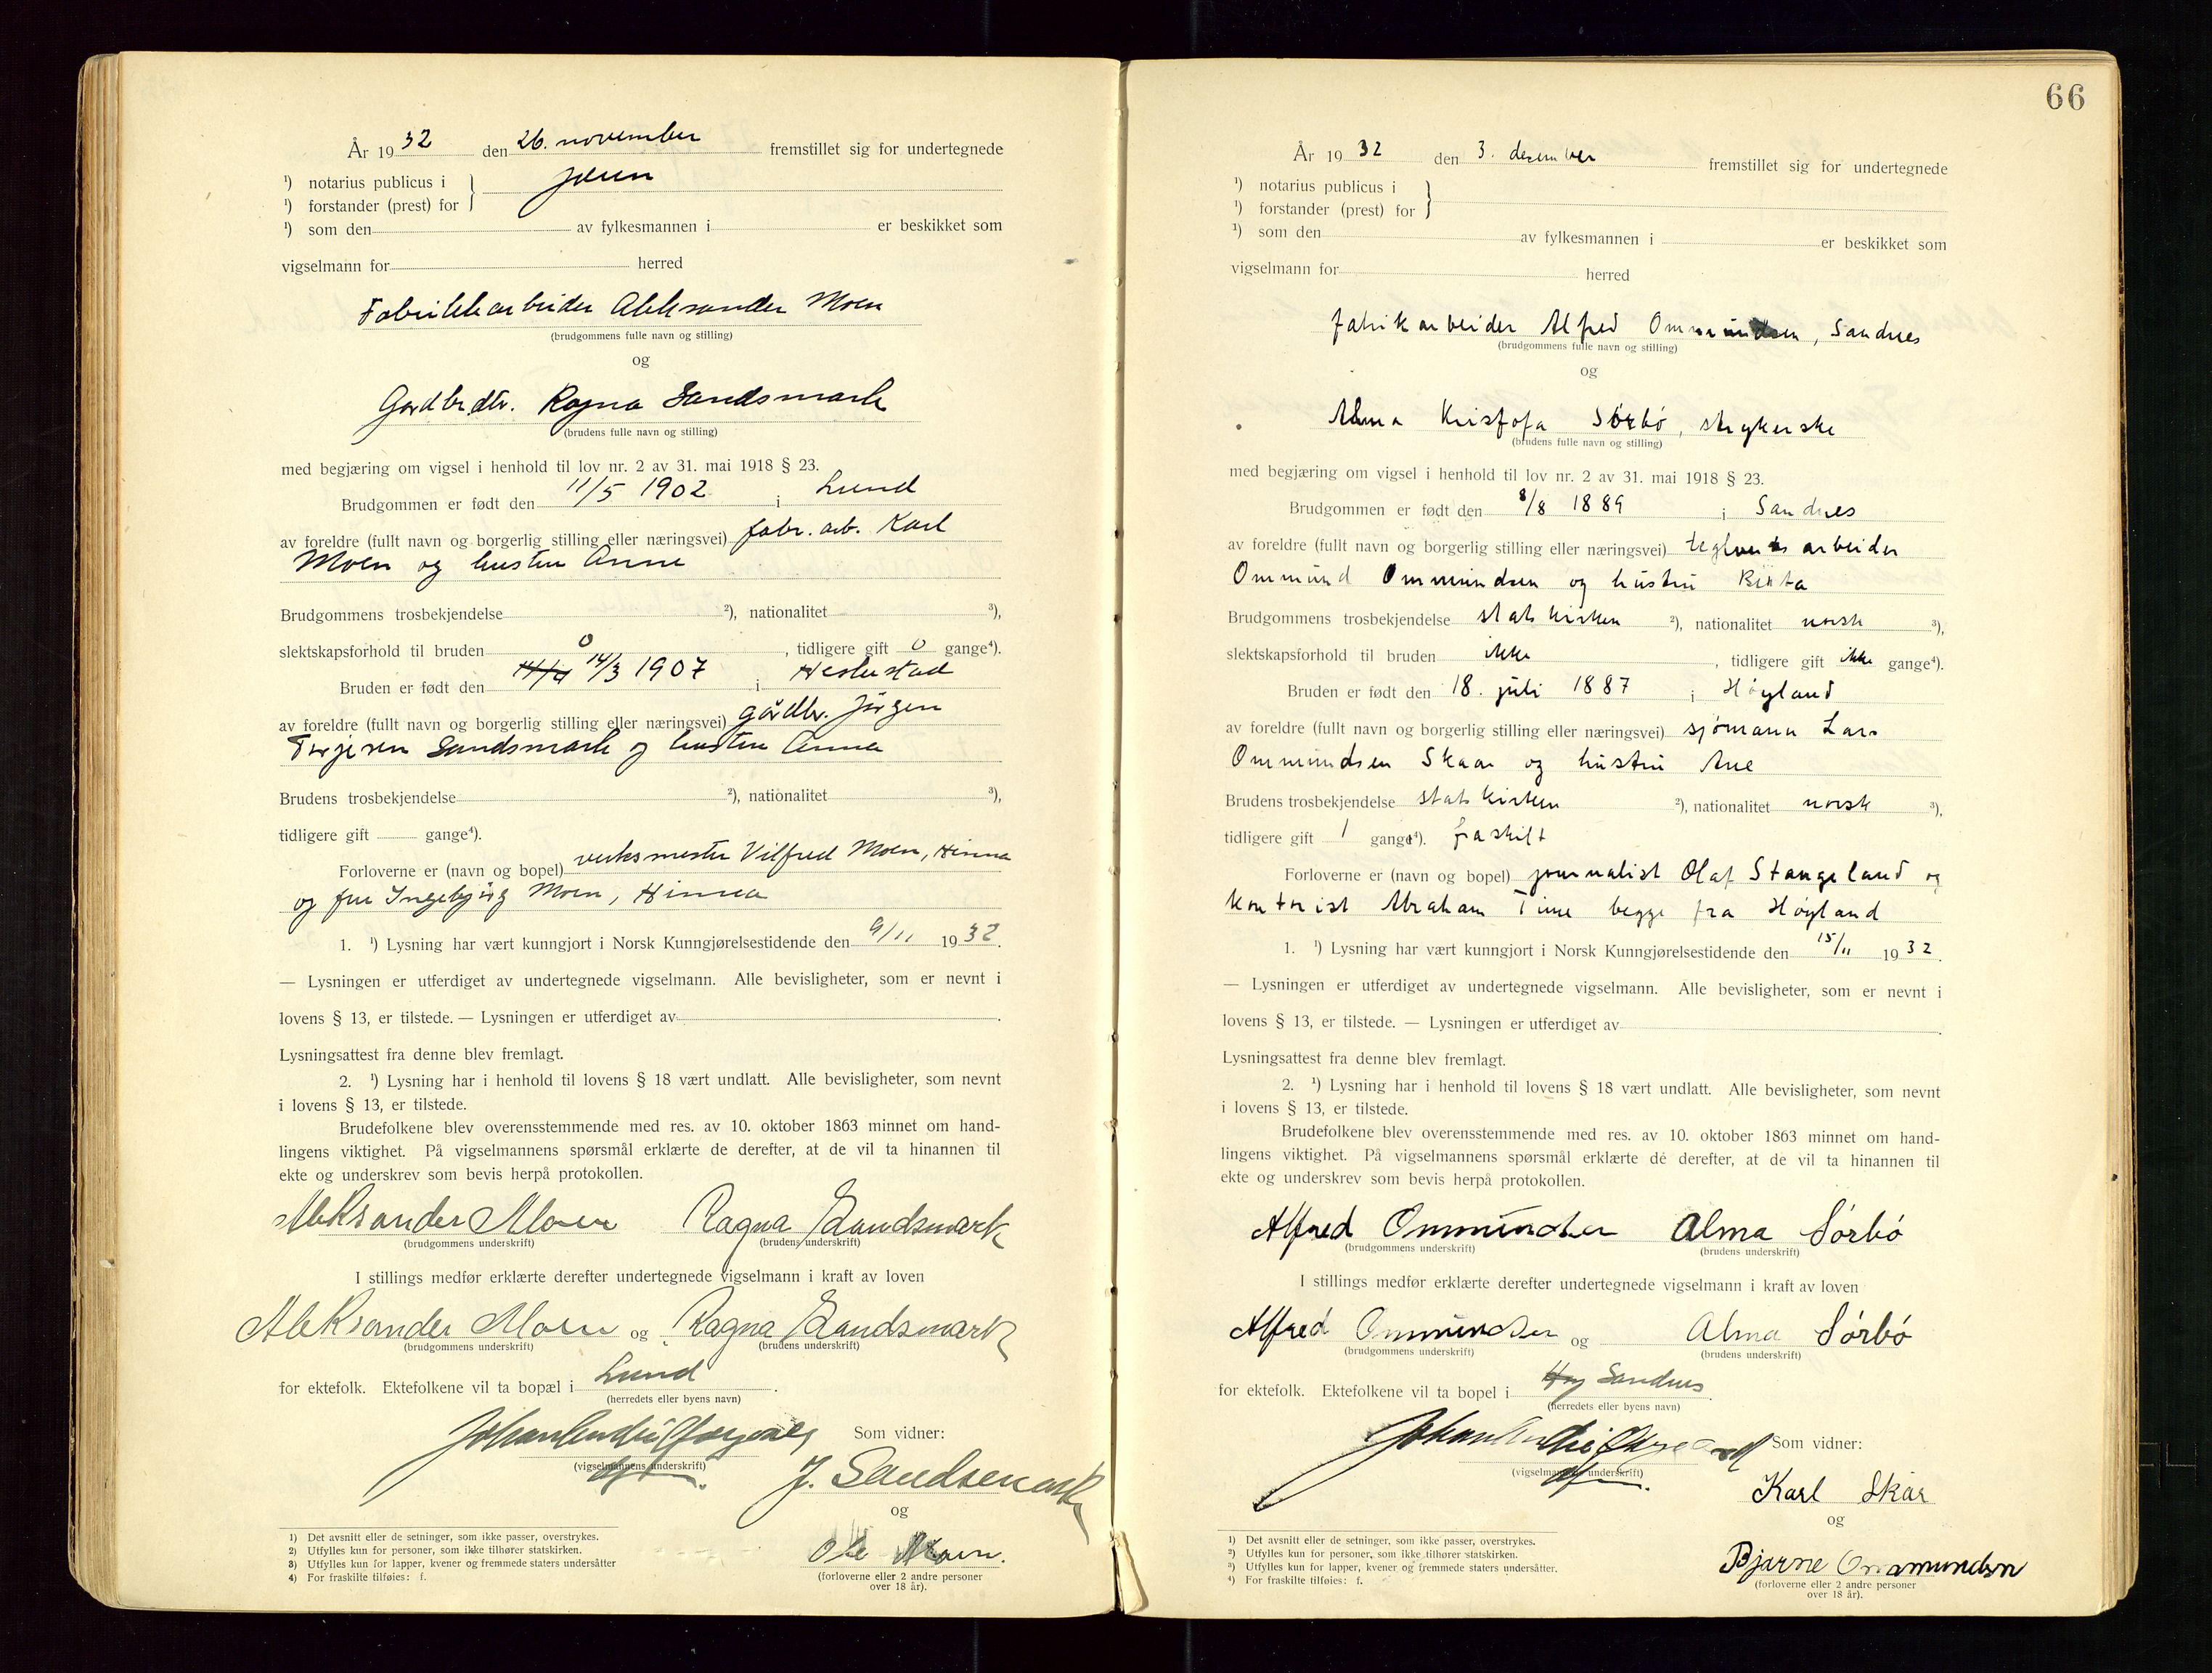 År 1932 den 26. november fremstillet sig for undertegnede
¹) notarius publicus i } Jæren
¹) forstander (prest) for
¹) som den av fylkesmannen i er beskikket som
vigselmann for herred
Fabrikkarbeider Aleksander Moen
(brudgommens fulle navn og stilling)
og
Gardbr.dtr. Ragna Sandsmark
(brudens fulle navn og stilling)
med begjæring om vigsel i henhold til lov nr. 2 av 31. mai 1918 § 23.
Brudgommen er født den 11/5 1902 i Lund
av foreldre (fullt navn og borgerlig stilling eller næringsvei) fabr. arb. Karl
Moen og hustru Anne
Brudgommens trosbekjendelse ²), nationalitet ³),
slektskapsforhold til bruden 0, tidligere gift 0 gange⁴).
Bruden er født den 14/3 1907 i Heskestad
av foreldre (fullt navn og borgerlig stilling eller næringsvei) gårdbr. Jørgen
Torjesen Sandsmark og hustru Anna
Brudens trosbekjendelse ²), nationalitet ³),
tidligere gift gange⁴).
Forloverne er (navn og bopel) verksmester Vilfred Moen, Hinna
og fru Ingebjørg Moen, Hinna
1. ¹) Lysning har vært kunngjort i Norsk Kunngjørelsestidende den 9/11 1932.
— Lysningen er utferdiget av undertegnede vigselmann. Alle bevisligheter, som er nevnt i
lovens § 13, er tilstede. — Lysningen er utferdiget av .
Lysningsattest fra denne blev fremlagt.
2. ¹) Lysning har i henhold til lovens § 18 vært undlatt. Alle bevisligheter, som nevnt
i lovens § 13, er tilstede.
Brudefolkene blev overensstemmende med res. av 10. oktober 1863 minnet om hand-
lingens viktighet. På vigselmannens spørsmål erklærte de derefter, at de vil ta hinannen til
ekte og underskrev som bevis herpå protokollen.
Aleksander Moen Ragna Sandsmark
(brudgommens underskrift) (brudens underskrift)
I stillings medfør erklærte derefter undertegnede vigselmann i kraft av loven
Aleksander Moen og Ragna Sandsmark
(brudgommens underskrift) (brudens underskrift)
for ektefolk. Ektefolkene vil ta bopæl i Lund.
(herredets eller byens navn)
Som vidner:
(vigselmannens underskrift)
J. Sandsmark
og
Ole Moen.
(forloverne eller 2 andre personer
over 18 år).
1) Det avsnitt eller de setninger, som ikke passer, overstrykes.
2) Utfylles kun for personer, som ikke tilhører statskirken.
3) Utfylles kun for lapper, kvener og fremmede staters undersåtter
4) For fraskilte tilføies: f.
66
År 1932 den 3. desember fremstillet sig for undertegnede
¹) notarius publicus i }
¹) forstander (prest) for
¹) som den av fylkesmannen i er beskikket som
vigselmann for herred
fabrikarbeider Alfred Ommundsen, Sandnes
(brudgommens fulle navn og stilling)
og
Alma Kristofa Sørbø, strykerske
(brudens fulle navn og stilling)
med begjæring om vigsel i henhold til lov nr. 2 av 31. mai 1918 § 23.
Brudgommen er født den 8/8 1889 i Sandnes
av foreldre (fullt navn og borgerlig stilling eller næringsvei) teglverksarbeider
Ommund Ommundsen og hustru Berta
Brudgommens trosbekjendelse statskirken ²), nationalitet norsk ³),
slektskapsforhold til bruden ikke, tidligere gift ikke gange⁴).
Bruden er født den 18. juli 1887 i Høyland
av foreldre (fullt navn og borgerlig stilling eller næringsvei) sjømann Lars
Ommundsen Skaar og hustru Ane
Brudens trosbekjendelse statskirken ²), nationalitet norsk ³),
tidligere gift 1 gange⁴). fraskilt
Forloverne er (navn og bopel) journalist Olaf Stangeland og
kontorist Abraham Time begge fra Høyland
1. ¹) Lysning har vært kunngjort i Norsk Kunngjørelsestidende den 15/11 1932.
— Lysningen er utferdiget av undertegnede vigselmann. Alle bevisligheter, som er nevnt i
lovens § 13, er tilstede. — Lysningen er utferdiget av .
Lysningsattest fra denne blev fremlagt.
2. ¹) Lysning har i henhold til lovens § 18 vært undlatt. Alle bevisligheter, som nevnt
i lovens § 13, er tilstede.
Brudefolkene blev overensstemmende med res. av 10. oktober 1863 minnet om hand-
lingens viktighet. På vigselmannens spørsmål erklærte de derefter, at de vil ta hinannen til
ekte og underskrev som bevis herpå protokollen.
Alfred Ommundsen Alma Sørbø
(brudgommens underskrift) (brudens underskrift)
I stillings medfør erklærte derefter undertegnede vigselmann i kraft av loven
Alfred Ommundsen og Alma Sørbø
(brudgommens underskrift) (brudens underskrift)
for ektefolk. Ektefolkene vil ta bopel i Høy Sandnes.
(herredets eller byens navn)
Som vidner:
(vigselmannens underskrift)
Karl Skar
og
Bjarne Ommundsen
(forloverne eller 2 andre personer
over 18 år).
1) Det avsnitt eller de setninger, som ikke passer, overstrykes.
2) Utfylles kun for personer, som ikke tilhører statskirken.
3) Utfylles kun for lapper, kvener og fremmede staters undersåtter.
4) For fraskilte tilføies: f.